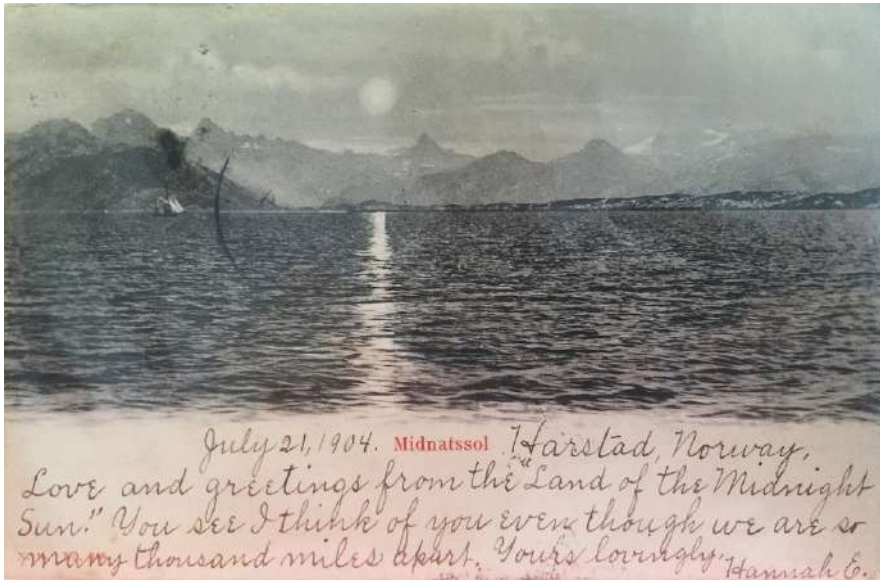 July 21, 1904. Midnatssol Harstad, Norway,
Love and greetings from the "Land of the Midnight
Sun." You see I think of you even though we are so
many thousand miles apart. Yours lovingly,
Hannah E.